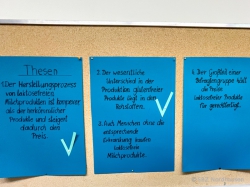 Thesen
1. Der Herstellungsprozess
von laktosefreien
Milchprodukten ist komplexer
als der herkömmlicher
Produkte und steigert
dadurch den
Preis.
2. Der wesentliche
Unterschied in der
Produktion glutenfreier
Produkte liegt in den
Rohstoffen.
3. Auch Menschen ohne die
entsprechende
Erkrankung kaufen
laktosefreie
Milchprodukte.
4. Der Großteil einer
hält
die Preise
laktosefreier Produkte
für gerechtfertigt.